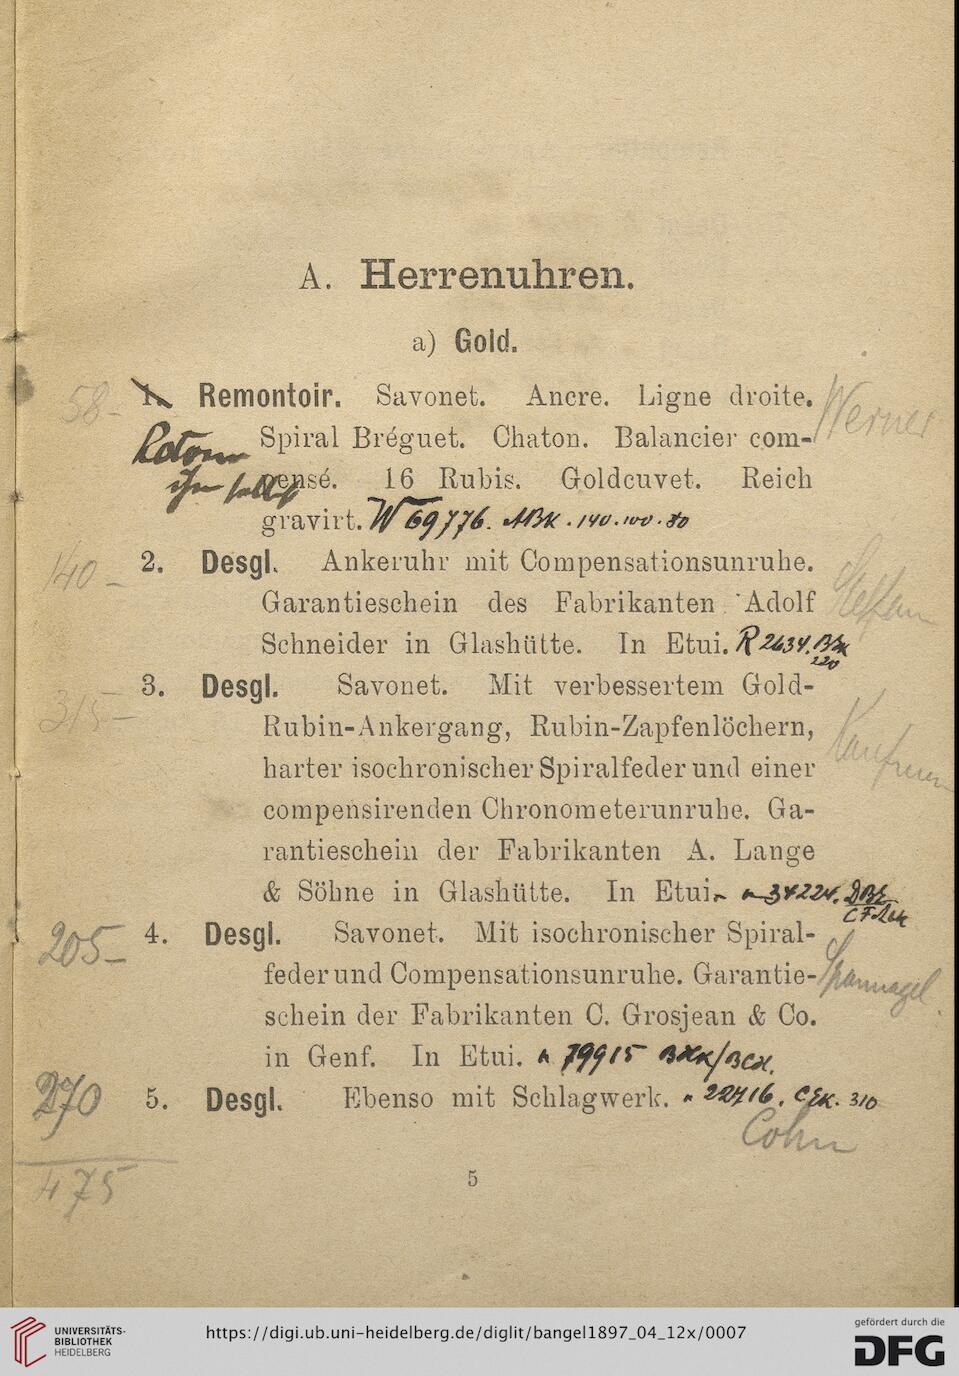 A. Herrenuhren.
a) Gold.
58- 1. Remontoir. Savonet. Ancre. Ligne droite. Werner
Spiral Bréguet. Chaton. Balancier com-
pensé. 16 Rubis. Goldcuvet. Reich
gravirt. W 69776. ABK. 140.100.80
140 - 2. Desgl. Ankeruhr mit Compensationsunruhe.
Garantieschein des Fabrikanten Adolf
Schneider in Glashütte. In Etui. R 2634.
220
315- 3. Desgl. Savonet. Mit verbessertem Gold-
Rubin-Ankergang, Rubin-Zapfenlöchern,
harter isochronischer Spiralfeder und einer
compensirenden Chronometerunruhe. Ga-
rantieschein der Fabrikanten A. Lange
& Söhne in Glashütte. In Etui. 34224.
205- 4. Desgl. Savonet. Mit isochronischer Spiral-
feder und Compensationsunruhe. Garantie- Spannagel
schein der Fabrikanten C. Grosjean & Co.
in Genf. In Etui. 79915
270 5. Desgl. Ebenso mit Schlagwerk. 22716. 310
Cohn
475
5
UNIVERSITÄTS-
BIBLIOTHEK
HEIDELBERG
https://digi.ub.uni-heidelberg.de/diglit/bangel1897_04_12x/0007
gefördert durch die
DFG